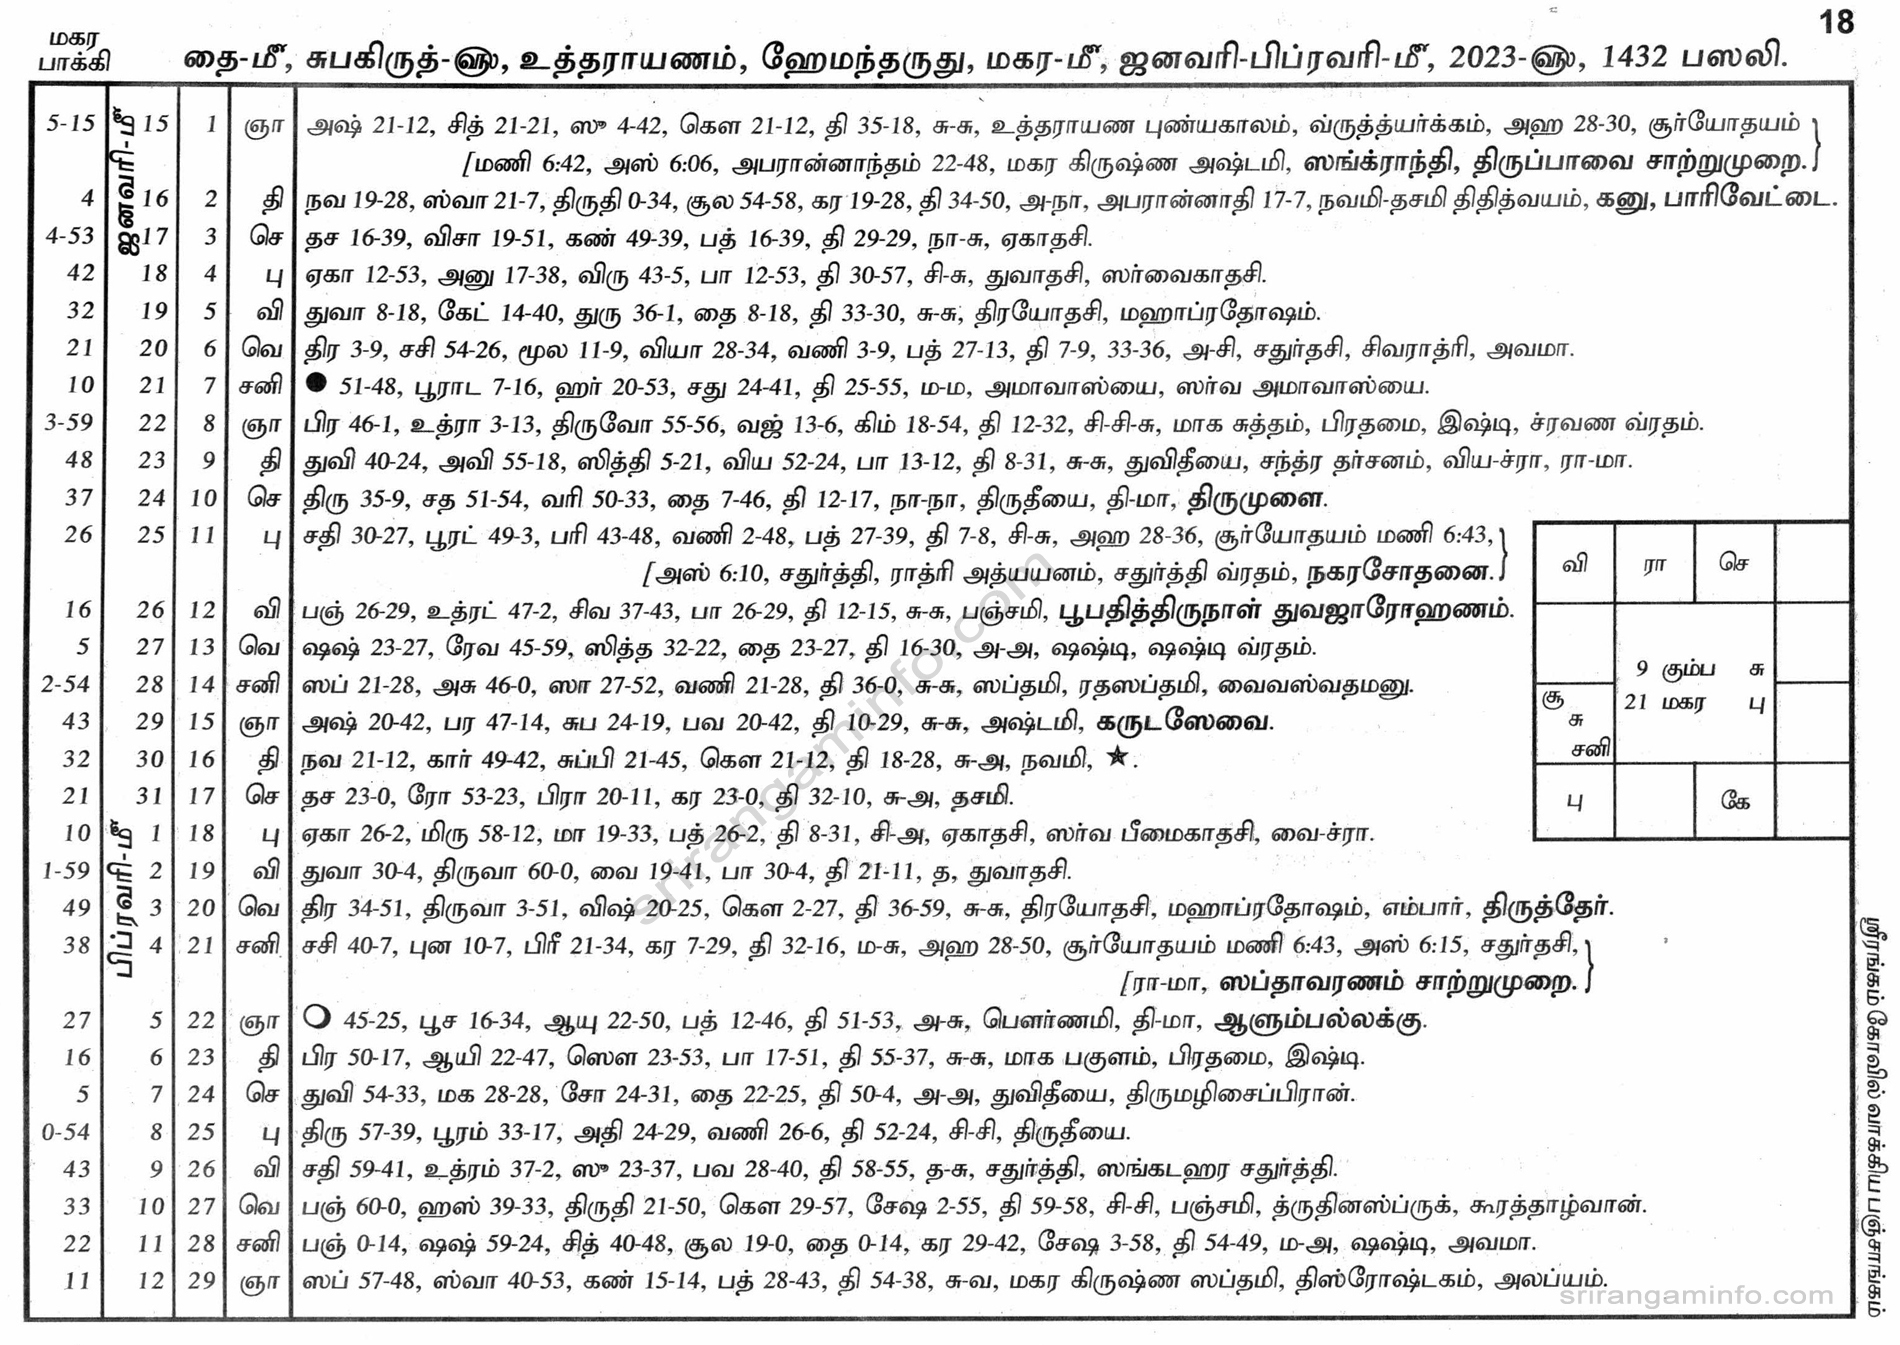 18
மகர
பாக்கி
தை-மீ, சுபகிருத்-௵, உத்தராயணம், ஹேமந்தருது, மகர-மீ, ஜனவரி-பிப்ரவரி-மீ, 2023-௵, 1432 பஸலி.
ஜனவரி-மீ
5-15 15 1 ஞா அஷ் 21-12, சித் 21-21, ஸு 4-42, கௌ 21-12, தி 35-18, சு-சு, உத்தராயண புண்யகாலம், வ்ருத்த்யர்க்கம், அஹ 28-30, சூர்யோதயம்
[மணி 6:42, அஸ் 6:06, அபரான்னாந்தம் 22-48, மகர கிருஷ்ண அஷ்டமி, ஸங்க்ராந்தி, திருப்பாவை சாற்றுமுறை.
4 16 2 தி நவ 19-28, ஸ்வா 21-7, திருதி 0-34, சூல 54-58, கர 19-28, தி 34-50, அ-நா, அபரான்னாதி 17-7, நவமி-தசமி திதித்வயம், கனு, பாரிவேட்டை.
4-53 17 3 செ தச 16-39, விசா 19-51, கண் 49-39, பத் 16-39, தி 29-29, நா-சு, ஏகாதசி.
42 18 4 பு ஏகா 12-53, அனு 17-38, விரு 43-5, பா 12-53, தி 30-57, சி-சு, துவாதசி, ஸர்வைகாதசி.
32 19 5 வி துவா 8-18, கேட் 14-40, துரு 36-1, தை 8-18, தி 33-30, சு-சு, திரயோதசி, மஹாப்ரதோஷம்.
21 20 6 வெ திர 3-9, சசி 54-26, மூல 11-9, வியா 28-34, வணி 3-9, பத் 27-13, தி 7-9, 33-36, அ-சி, சதுர்தசி, சிவராத்ரி, அவமா.
10 21 7 சனி ● 51-48, பூராட 7-16, ஹர் 20-53, சது 24-41, தி 25-55, ம-ம, அமாவாஸ்யை, ஸர்வ அமாவாஸ்யை.
3-59 22 8 ஞா பிர 46-1, உத்ரா 3-13, திருவோ 55-56, வஜ் 13-6, கிம் 18-54, தி 12-32, சி-சி-சு, மாக சுத்தம், பிரதமை, இஷ்டி, ச்ரவண வ்ரதம்.
48 23 9 தி துவி 40-24, அவி 55-18, ஸித்தி 5-21, விய 52-24, பா 13-12, தி 8-31, சு-சு, துவிதீயை, சந்த்ர தர்சனம், விய-ச்ரா, ரா-மா.
37 24 10 செ திரு 35-9, சத 51-54, வரி 50-33, தை 7-46, தி 12-17, நா-நா, திருதீயை, தி-மா, திருமுளை.
26 25 11 பு சதி 30-27, பூரட் 49-3, பரி 43-48, வணி 2-48, பத் 27-39, தி 7-8, சி-சு, அஹ 28-36, சூர்யோதயம் மணி 6:43,
[அஸ் 6:10, சதுர்த்தி, ராத்ரி அத்யயனம், சதுர்த்தி வ்ரதம், நகரசோதனை.
16 26 12 வி பஞ் 26-29, உத்ரட் 47-2, சிவ 37-43, பா 26-29, தி 12-15, சு-சு, பஞ்சமி, பூபதித்திருநாள் துவஜாரோஹணம்.
5 27 13 வெ ஷஷ் 23-27, ரேவ 45-59, ஸித்த 32-22, தை 23-27, தி 16-30, அ-அ, ஷஷ்டி, ஷஷ்டி வ்ரதம்.
2-54 28 14 சனி ஸப் 21-28, அசு 46-0, ஸா 27-52, வணி 21-28, தி 36-0, சு-சு, ஸப்தமி, ரதஸப்தமி, வைவஸ்வதமனு.
43 29 15 ஞா அஷ் 20-42, பர 47-14, சுப 24-19, பவ 20-42, தி 10-29, சு-சு, அஷ்டமி, கருடஸேவை.
32 30 16 தி நவ 21-12, கார் 49-42, சுப்பி 21-45, கௌ 21-12, தி 18-28, சு-அ, நவமி, ★.
21 31 17 செ தச 23-0, ரோ 53-23, பிரா 20-11, கர 23-0, தி 32-10, சு-அ, தசமி.
பிப்ரவரி-மீ
10 1 18 பு ஏகா 26-2, மிரு 58-12, மா 19-33, பத் 26-2, தி 8-31, சி-அ, ஏகாதசி, ஸர்வ பீமைகாதசி, வை-ச்ரா.
1-59 2 19 வி துவா 30-4, திருவா 60-0, வை 19-41, பா 30-4, தி 21-11, த, துவாதசி.
49 3 20 வெ திர 34-51, திருவா 3-51, விஷ் 20-25, கௌ 2-27, தி 36-59, சு-சு, திரயோதசி, மஹாப்ரதோஷம், எம்பார், திருத்தேர்.
38 4 21 சனி சசி 40-7, புன 10-7, பிரீ 21-34, கர 7-29, தி 32-16, ம-சு, அஹ 28-50, சூர்யோதயம் மணி 6:43, அஸ் 6:15, சதுர்தசி,
[ரா-மா, ஸப்தாவரணம் சாற்றுமுறை.
27 5 22 ஞா ○ 45-25, பூச 16-34, ஆயு 22-50, பத் 12-46, தி 51-53, அ-சு, பௌர்ணமி, தி-மா, ஆளும்பல்லக்கு.
16 6 23 தி பிர 50-17, ஆயி 22-47, ஸௌ 23-53, பா 17-51, தி 55-37, சு-சு, மாக பகுளம், பிரதமை, இஷ்டி.
5 7 24 செ துவி 54-33, மக 28-28, சோ 24-31, தை 22-25, தி 50-4, அ-அ, துவிதீயை, திருமழிசைப்பிரான்.
0-54 8 25 பு திரு 57-39, பூரம் 33-17, அதி 24-29, வணி 26-6, தி 52-24, சி-சி, திருதீயை.
43 9 26 வி சதி 59-41, உத்ரம் 37-2, ஸு 23-37, பவ 28-40, தி 58-55, த-சு, சதுர்த்தி, ஸங்கடஹர சதுர்த்தி.
33 10 27 வெ பஞ் 60-0, ஹஸ் 39-33, திருதி 21-50, கௌ 29-57, சேஷ 2-55, தி 59-58, சி-சி, பஞ்சமி, த்ருதினஸ்ப்ருக், கூரத்தாழ்வான்.
22 11 28 சனி பஞ் 0-14, ஷஷ் 59-24, சித் 40-48, சூல 19-0, தை 0-14, கர 29-42, சேஷ 3-58, தி 54-49, ம-அ, ஷஷ்டி, அவமா.
11 12 29 ஞா ஸப் 57-48, ஸ்வா 40-53, கண் 15-14, பத் 28-43, தி 54-38, சு-வ, மகர கிருஷ்ண ஸப்தமி, திஸ்ரோஷ்டகம், அலப்யம்.
வி ரா செ
9 கும்ப சு
21 மகர பு
சூ
சு
சனி
பு கே
ஸ்ரீரங்கம் கோவில் வாக்கிய பஞ்சாங்கம்
srirangaminfo.com
srirangaminfo.com